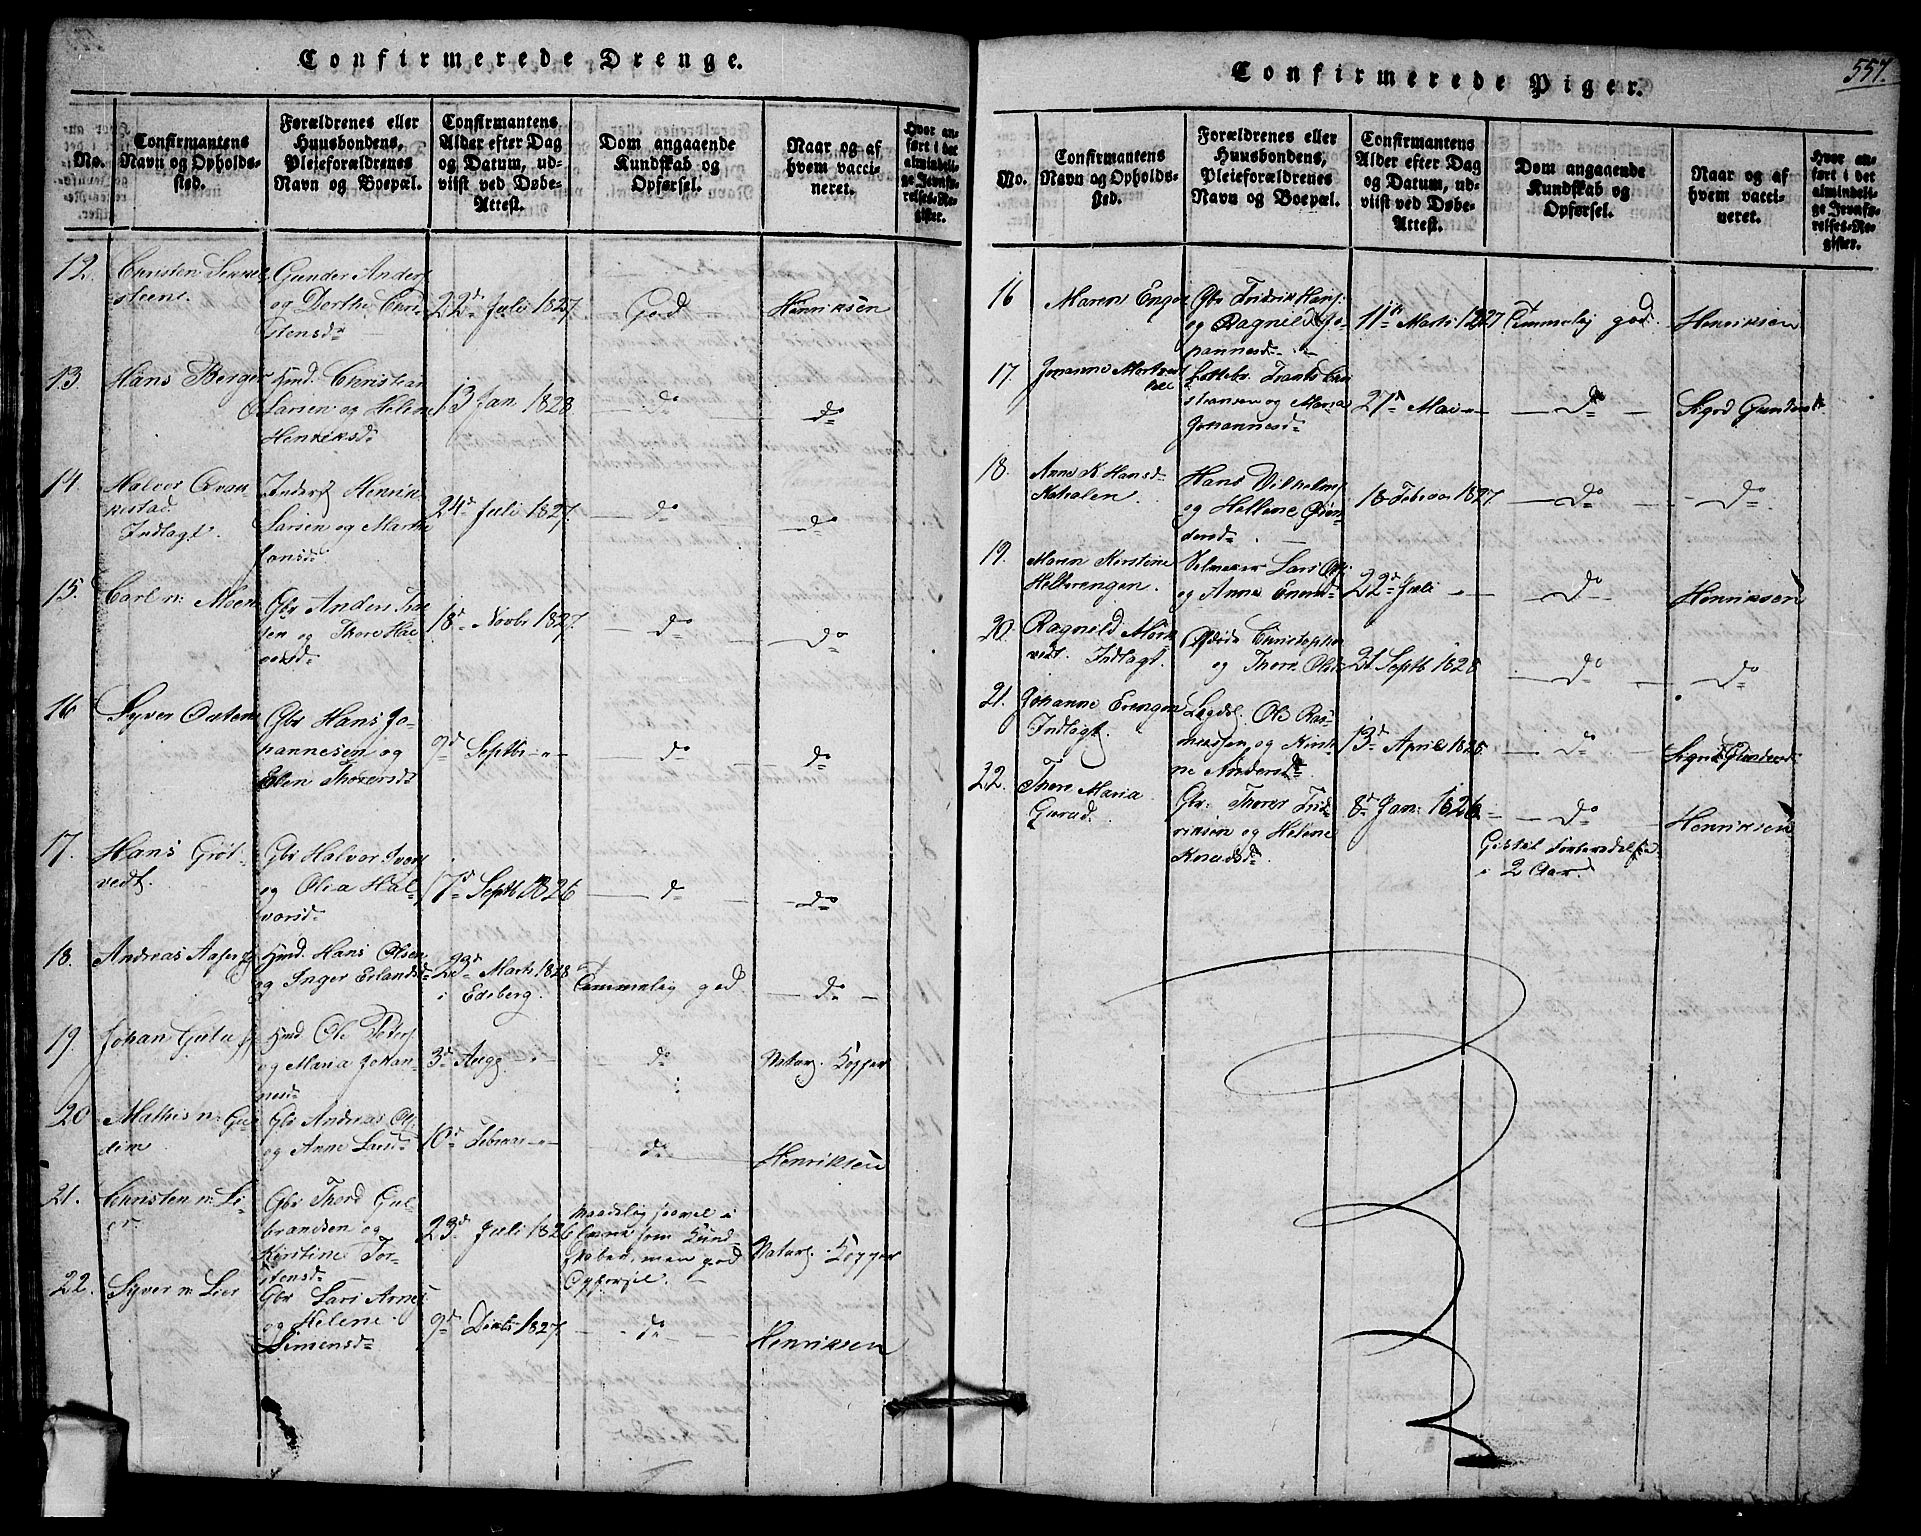 557.
Confirmerede Drenge.
No.
Confirmantens
Navn og Opholds-
sted.
Forældrenes eller
Huusbondens,
Pleieforældrenes
Navn og Boepæl.
Confirmantens
Alder efter Dag
og Datum, ud-
viist ved Døbe-
Attest.
Dom angaaende
Kundskab og
Opførsel.
Naar og af
hvem vacci-
neret.
Hvor an-
ført i det
almindeli-
ge Jevnfø-
relses-Re-
gister.
12.
Christen
steens.
Gunder Anders
og Dorthe Chri-
stensd
22d Juli 1827.
God
Henriksen
13.
Hans Berger
Hmd. Christian
Larsen og Helene
Henriksd
13 Jan. 1828.
do
do
14.
Halvor
Indlagt.
Inders Henrik
Larsen og Marthe
Jansd
24d Juli 1827.
do
do
15.
Carl n: Moen
Gbr Anders
sen og Thore Hal
vorsd
18d Novbr 1827.
do
do
16
Syver
Gbr Hans Jo-
hannesen og
Thorersd
9d Septbr "
do
do
17.
Hans Grøt-
vedt.
Gbr Halvor Ivers
og Olia Hal-
vorsd
17d Septb 1826
do
do
18.
Andreas
Hmd. Hans Olsen
og Inger Erlandsd
23d Marts 1828
i Edsberg.
Temmelig god
do
19.
Johan
Hmd Ole Peters
og Maria Johan-
nesd
3d Aug. "
do
Naturl. Kopper
20
Mathis n: Gu-
dim
Gbr Andreas Ols
og Anne Larsd
10d Februar "
do
Henriksen
21.
Christen n: Li-
er.
Gbr Thord Gul
brandsen og
Kirstine Tor-
stensd
23d Juli 1826
maadelig saavel i
Læsen som Kund-
skaber, men god
Opførsel.
Naturl. Kopper
22.
Syver n: Lier
Gbr Lars Arnes
og Helene
Simensd
9d Decbr 1827.
do
Henriksen
Confirmerede Piger.
No.
Confirmantens
Navn og Opholds-
sted.
Forældrenes eller
Huusbondens,
Pleieforældrenes
Navn og Boepæl.
Confirmantens
Alder efter Dag
og Datum, ud-
viist ved Døbe-
Attest.
Dom angaaende
Kundskab og
Opførsel.
Naar og af
hvem vacci-
neret.
Hvor an-
ført i det
almindeli-
ge Jevnfø-
relses-Re-
gister.
16
Maren Enger
Gbr Fridrik Hans
og Ragnild Jo-
hannesd
11te Marts 1827
Temmelig god.
Henriksen
17.
Johanne Mortvedt
Frants Chri
stiansen og Maria
Johannesd
27d Mai "
do
Sigrd Gundersd
18.
Anne K Hansd
Hans Vilhelms
og Hellene Gun-
dersd
18 Februar 1827
do
do
19.
Maren Kirstine
Lars Ols
og Anne Enersd
22d Juli "
do
Henriksen
20.
Ragnild Mørk
vedt. Indlagt.
Christopher
og Thore Olsd
21 Septb 1828
do
do
21.
Johanne Evengen
Indlagt.
Lægdsl. Ole Ras-
mussen og Kirsti
ne Andersd
13d April 1825.
do
Sigrd Gundersd
22.
Thore Maria
Gurud.
Gbr. Thorer Frid
riksen og Helene
Knudsd.
8d Jan: 1826.
do
2 Aar.
Henriksen